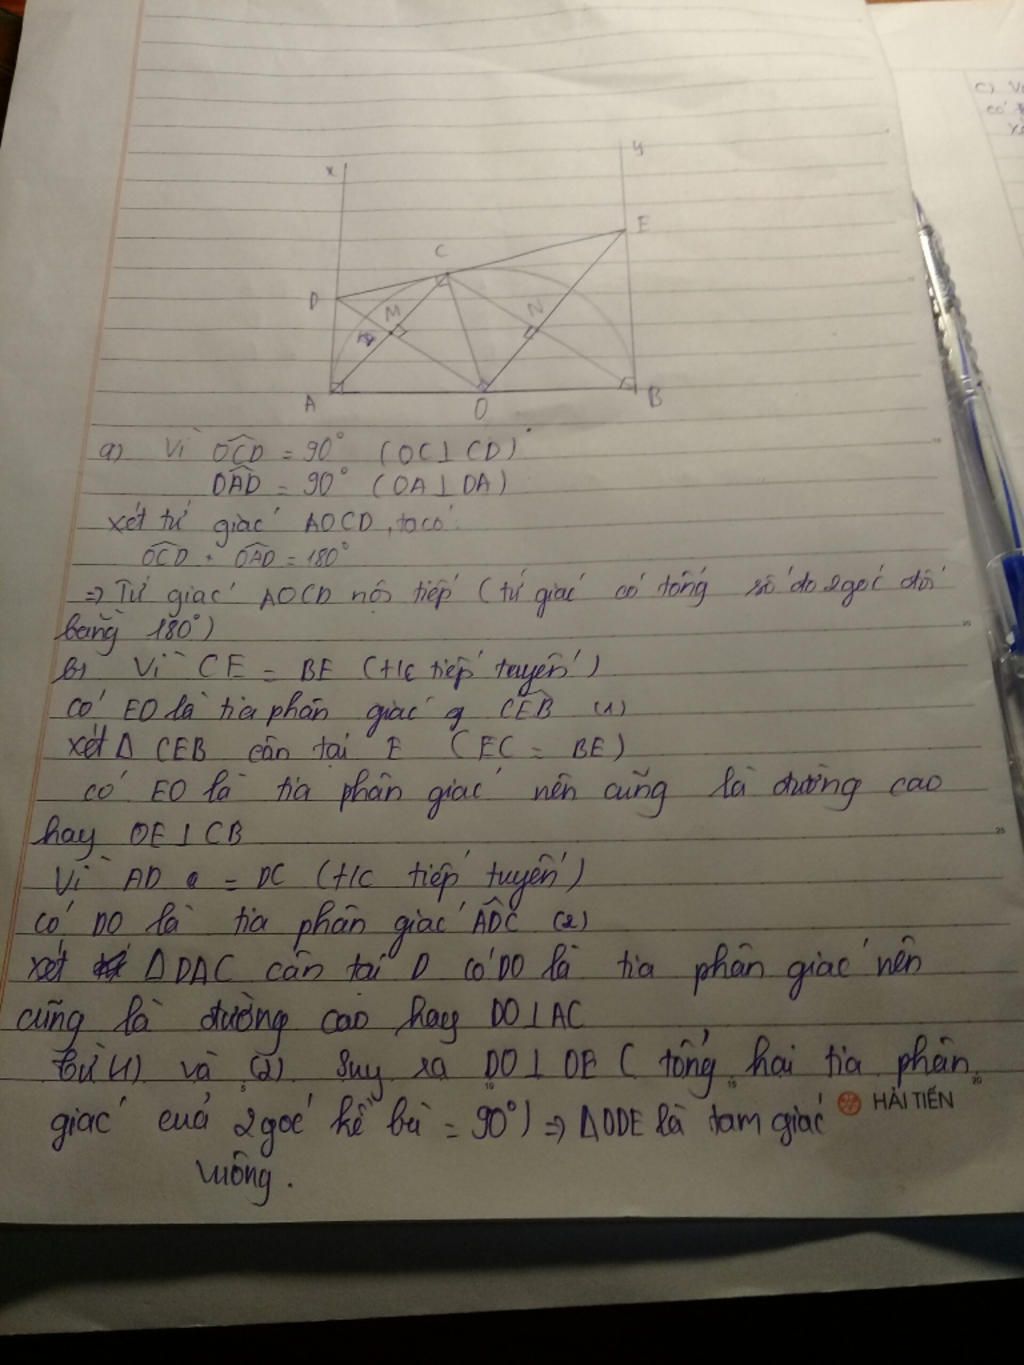 c) Vì
có
x
y
E
C
D
M
N
A
O
B
a) Vì OCD = 90° (OC⊥CD)
OAD = 90° (OA⊥DA)
xét tứ giác AOCD, ta có:
OCD + OAD = 180°
=> Tứ giác AOCD nội tiếp (tứ giác có tổng số đo 2 góc đối
bằng 180°)
b) Vì CE = BE (t/c tiếp tuyến)
có EO là tia phân giác g CEB (1)
xét Δ CEB cân tại E (EC = BE)
có EO là tia phân giác nên cũng là đường cao
hay OE⊥CB
Vì AD = DC (t/c tiếp tuyến)
có DO là tia phân giác ADC (2)
xét ΔDAC cân tại D có DO là tia phân giác nên
cũng là đường cao hay DO⊥AC
từ (1) và (2) suy ra DO⊥OE (tổng hai tia phân
giác của 2 góc kề bù = 90°) => ΔODE là tam giác
vuông.
HẢI TIẾN